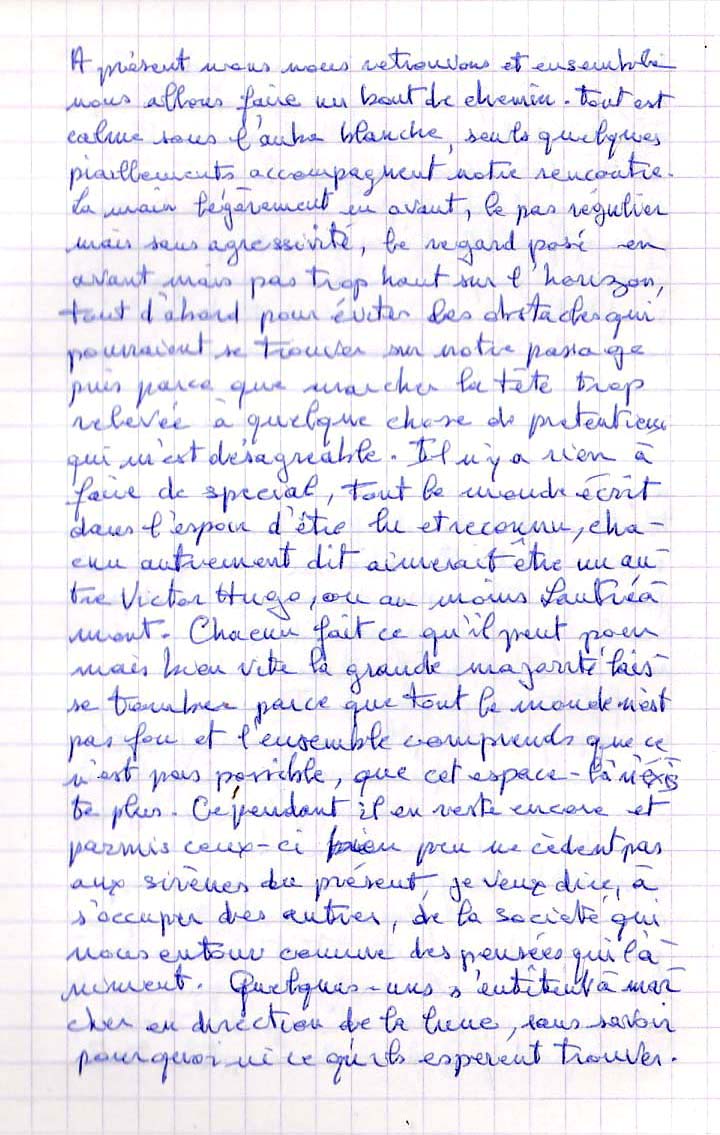 A présent nous nous retrouvons et ensemble
nous allons faire un bout de chemin. tout est
calme sous l'aube blanche, seuls quelques
piaillements accompagnent notre rencontre.
La main légèrement en avant, le pas régulier
mais sans agressivité, le regard posé en
avant mais pas trop haut sur l'horizon,
tout d'abord pour éviter les obstacles qui
pourraient se trouver sur notre passage
puis parce que marcher la tête trop
relevée à quelque chose de pretentieux
qui m'est désagréable. Il n'y a rien à
faire de special, tout le monde écrit
dans l'espoir d'être lu et reconnu, cha-
cun autrement dit aimerait être un au-
tre Victor Hugo, ou au moins Lautréa-
mont. Chacun fait ce qu'il peut pour
mais bien vite la grande majorité lais-
se tomber parce que tout le monde n'est
pas fou et l'ensemble comprends que ce
n'est pas possible, que cet espace-là n'exis
te plus. Cependant il en reste encore et
parmis ceux-ci bien peu ne cèdent pas
aux sirènes du présent, je veux dire, à
s'occuper des autres, de la societé qui
nous entour comme des pensées qui l'a-
niment. Quelques-uns s'entêtent à mar-
cher en direction de la lune, sans savoir
pourquoi ni ce qu'ils esperent trouver.